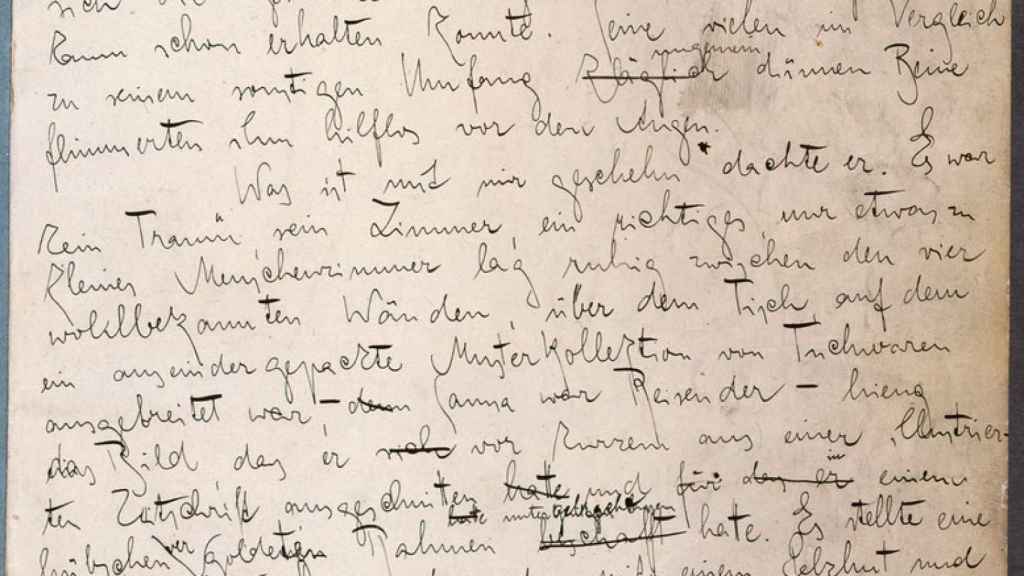 sich die
kaum schon erhalten konnte. Seine vielen im Vergleich
ungemein
zu seinem sonstigen Umfang kläglich dünnen Beine
flimmerten ihm hilflos vor den Augen.
Was ist mit mir geschehn dachte er. Es war
kein Traum, sein Zimmer, ein richtiges, nur etwas zu
kleines Menschenzimmer lag ruhig zwischen den vier
wohlbekannten Wänden, über dem Tisch, auf dem
ein auseindergepackte Musterkollektion von Tuchwaren
ausgebreitet war – denn Samsa war Reisender – hieng
das Bild das er sich vor kurzem aus einer illustrier-
in
ten Zeitschrift ausgeschnitten hatte und für das er einem
untergebracht
hübschen vergoldeten Rahmen beschafft hate. Es stellte eine
mit einem Pelzhut und